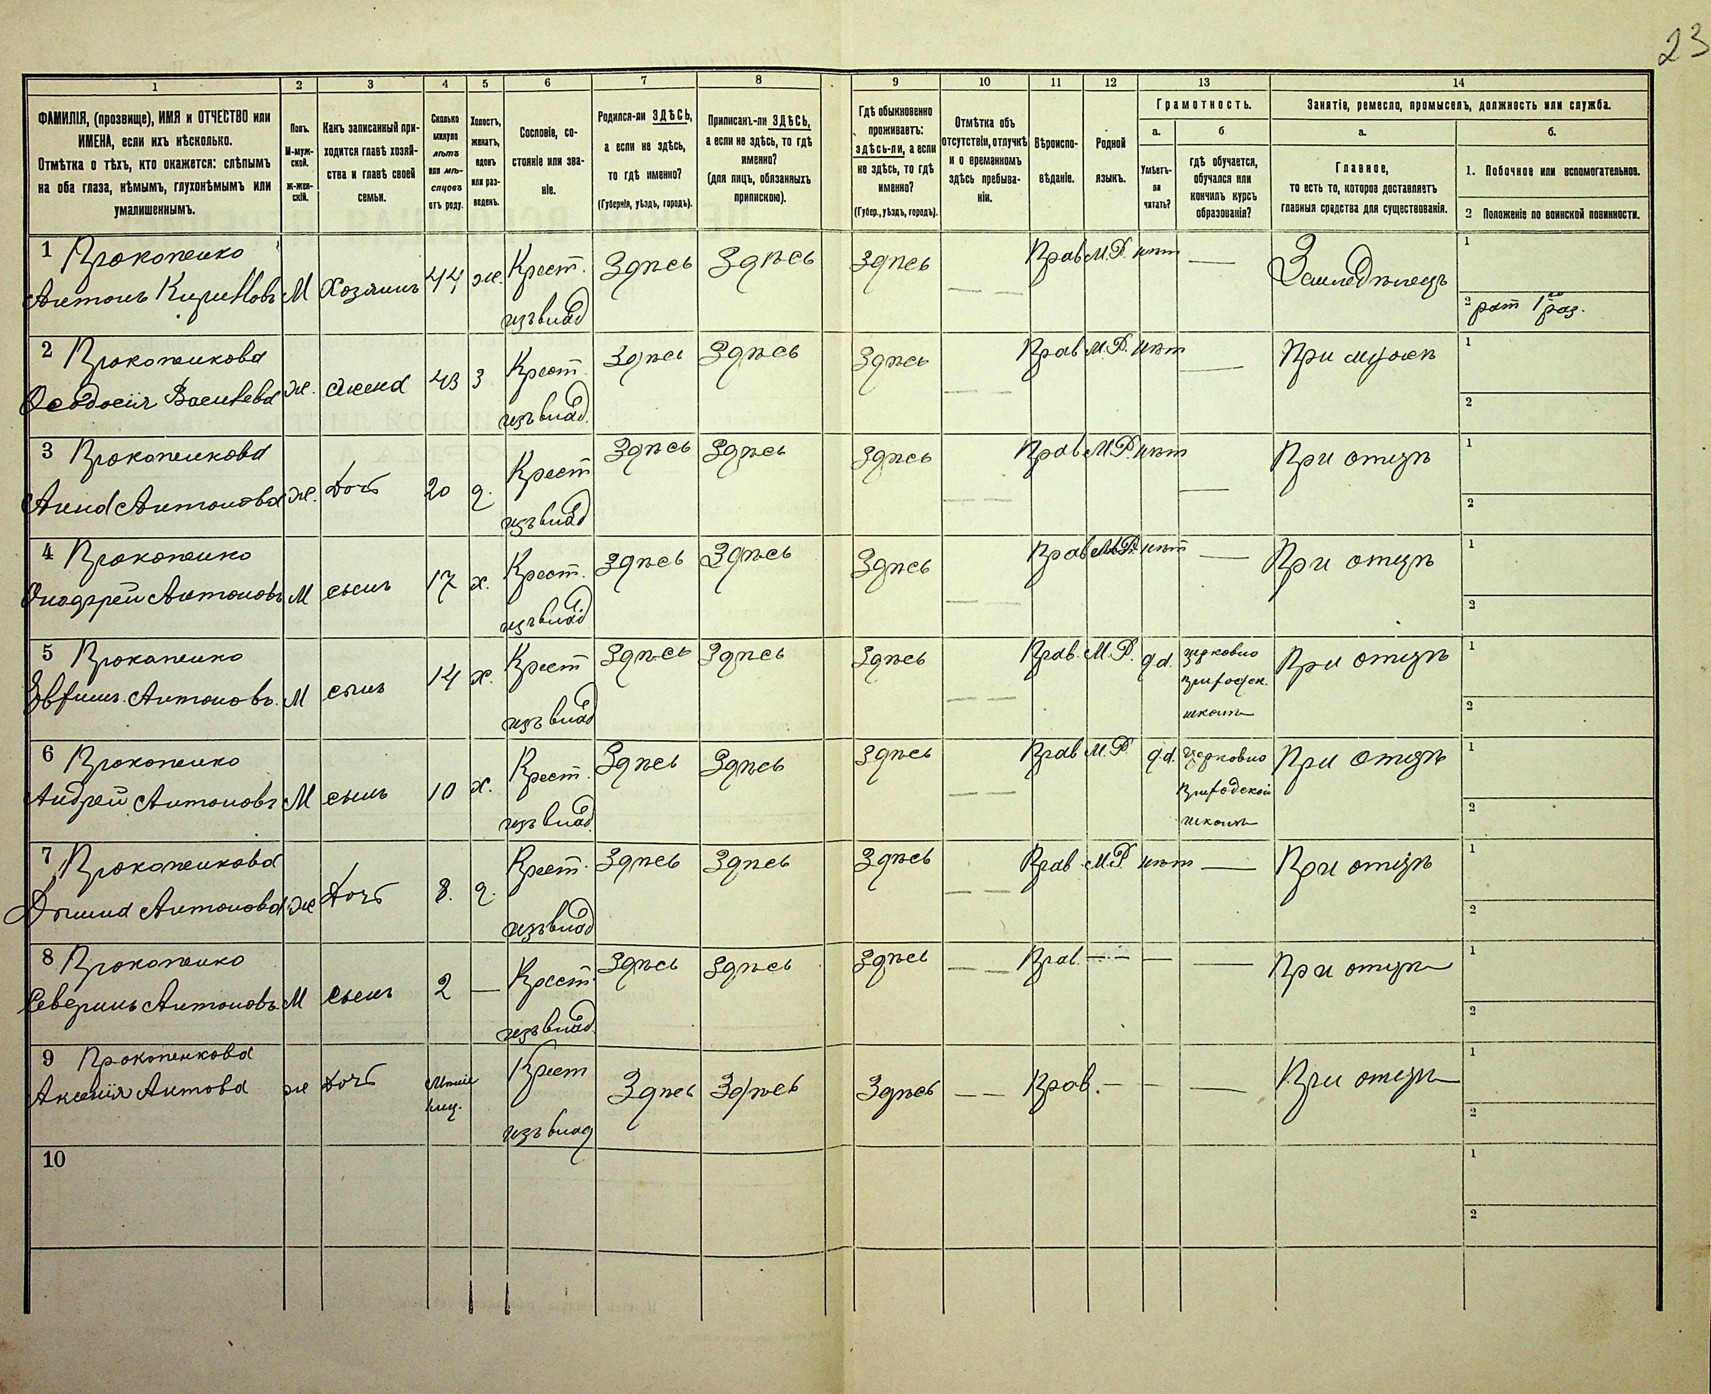 23
1 2 3 4 5 6 7 8 9 10 11 12 13 14
ФАМИЛІЯ, (прозвище), ИМЯ и ОТЧЕСТВО или
ИМЕНА, если ихъ нѣсколько.
Отмѣтка о тѣхъ, кто окажется: слѣпымъ
на оба глаза, нѣмымъ, глухонѣмымъ или
умалишеннымъ.
Полъ.
М-муж-
ской.
ж-жен-
скій.
Какъ записанный при-
ходится главѣ хозяй-
ства и главѣ своей
семьи.
Сколько
минуло
лѣтъ
или мѣ-
сяцовъ
отъ роду.
Холостъ,
женатъ,
вдовъ
или раз-
веденъ.
Сословіе, со-
стояніе или зва-
ніе.
Родился-ли ЗДѢСЬ,
а если не здѣсь,
то гдѣ именно?
(Губернія, уѣздъ, городъ).
Приписанъ-ли ЗДѢСЬ,
а если не здѣсь, то гдѣ
именно?
(для лицъ, обязанныхъ
припискою).
Гдѣ обыкновенно
проживаетъ:
здѣсь-ли, а если
не здѣсь, то гдѣ
именно?
(Губер., уѣздъ, городъ).
Отмѣтка объ
отсутствіи, отлучкѣ
и о временномъ
здѣсь пребыва-
ніи.
Вѣроиспо-
вѣданіе.
Родной
языкъ.
Грамотность.
а.
Умѣетъ-
ли
читать?
б
гдѣ обучается,
обучался или
кончилъ курсъ
образованія?
Занятіе, ремесло, промыселъ, должность или служба.
а.
Главное,
то есть то, которое доставляетъ
главныя средства для существованія.
б.
1. Побочное или вспомогательное.
2 Положеніе по воинской повинности.
1 Прокопенко
Антонъ Кириловъ М Хозяинъ 44 же. Крест. изъ влад Здѣсь Здѣсь Здѣсь — — Прав М.Р. нѣт — Земледѣлецъ
1
2 рат 1го раз.
2 Прокопенкова
Ѳеодосія Василева ж. жена 43 з Крест. изъ влад. Здѣсь Здѣсь Здѣсь — — Прав М.Р. нѣт — При мужѣ
1
2
3 Прокопенкова
Анна Антонова ж. дочь 20 д. Крест изъ влад Здѣсь Здѣсь Здѣсь — — Прав М.Р. нѣт — При отцѣ
1
2
4 Прокопенко
Антоновъ М сынъ 17 х. Крест. изъ влад Здѣсь Здѣсь Здѣсь — — Прав М.Р. нѣт — При отцѣ
1
2
5 Прокопенко
Евфимъ Антоновъ М сынъ 14 х. Крест изъ влад Здѣсь Здѣсь Здѣсь — — Прав. М.Р. да церковно приходск. школѣ При отцѣ
1
2
6 Прокопенко
Андрей Антоновъ М сынъ 10 х. Крест. изъ влад. Здѣсь Здѣсь Здѣсь — — Прав М.Р. да церковно приходской школѣ При отцѣ
1
2
7 Прокопенкова
Антонова же дочь 8. д. Крест. изъ влад Здѣсь Здѣсь Здѣсь — — Прав М.Р нѣт — При отцѣ
1
2
8 Прокопенко
Северинъ Антоновъ М сынъ 2 — Крест. изъ влад. Здѣсь Здѣсь Здѣсь — — Прав. — — — — При отцѣ
1
2
9 Прокопенкова
Аксенія Антова ж дочь Крест изъ влад Здѣсь Здѣсь Здѣсь — — Прав. — — — При отцѣ
1
2
10
1
2